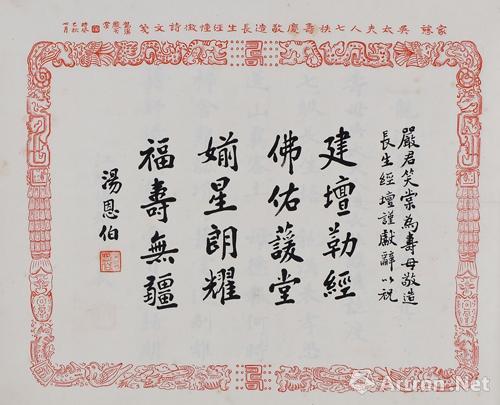 家慈 吳太夫人七秩壽慶敬造長生經幢徵詩文箋
嚴君笑棠為壽母敬造
長生經壇謹獻辭以祝
建壇勒經
佛佑蘐堂
媊星朗耀
福壽無疆
湯恩伯
Artron.Net